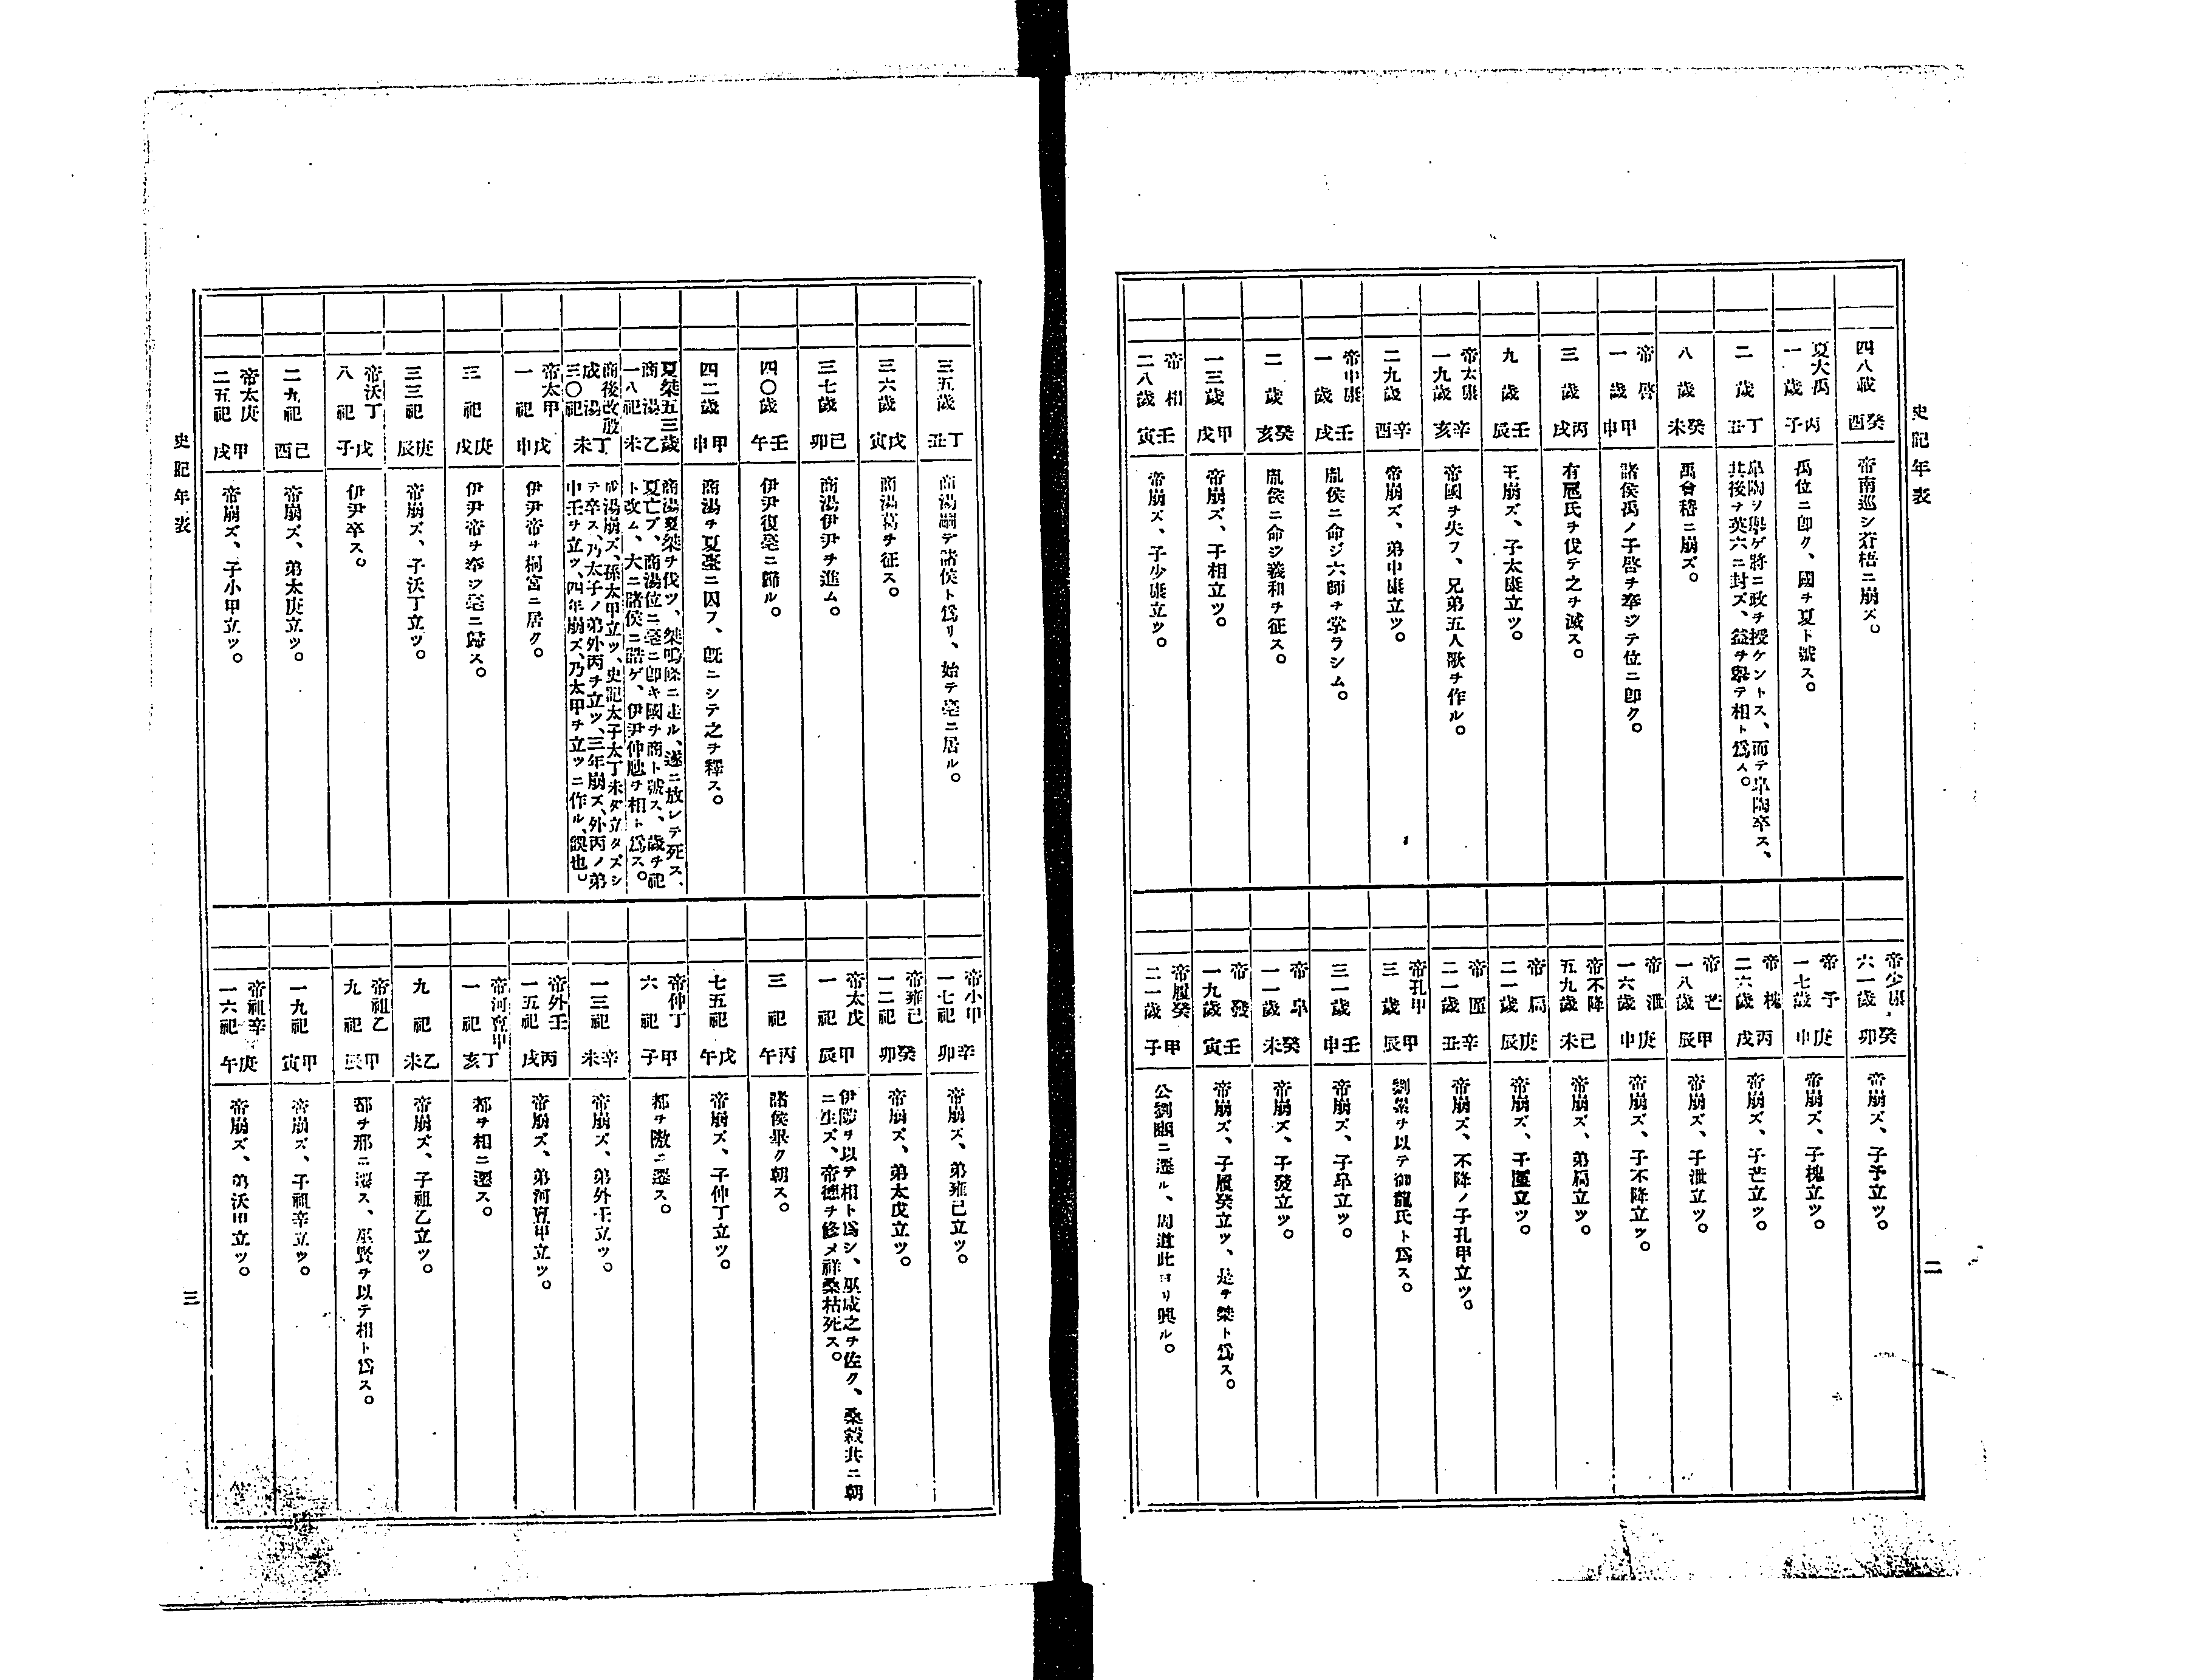 史記年表
二
四八載 癸酉 帝南巡シ蒼梧ニ崩ズ。
夏大禹 一歲 丙子 禹位ニ卽ク、國ヲ夏ト號ス。
二歲 丁丑 皐陶ヲ擧ゲ將ニ政ヲ授ケントス、而テ皐陶卒ス、
其後ヲ英六ニ封ズ、益ヲ擧テ相ト爲ス。
八歲 癸未 禹會稽ニ崩ズ。
帝啓 一歲 甲申 諸侯禹ノ子啓ヲ奉ジテ位ニ卽ク。
三歲 丙戌 有扈氏ヲ伐テ之ヲ滅ス。
九歲 壬辰 王崩ズ、子太康立ツ。
帝太康 一九歲 辛亥 帝國ヲ失フ、兄弟五人歌ヲ作ル。
二九歲 辛酉 帝崩ズ、弟中康立ツ。
帝中康 一歲 壬戌 胤侯ニ命ジ六師ヲ掌ラシム。
二歲 癸亥 胤侯ニ命ジ羲和ヲ征ス。
一三歲 甲戌 帝崩ズ、子相立ツ。
帝相 二八歲 壬寅 帝崩ズ、子少康立ツ。
帝少康 六一歲 癸卯 帝崩ズ、子予立ツ。
帝予 一七歲 庚申 帝崩ズ、子槐立ツ。
帝槐 二六歲 丙戌 帝崩ズ、子芒立ツ。
帝芒 一八歲 甲辰 帝崩ズ、子泄立ツ。
帝泄 一六歲 庚申 帝崩ズ、子不降立ツ。
帝不降 五九歲 己未 帝崩ズ、弟扃立ツ。
帝扃 二一歲 庚辰 帝崩ズ、子廑立ツ。
帝廑 二一歲 辛丑 帝崩ズ、不降ノ子孔甲立ツ。
帝孔甲 三歲 甲辰 劉累ヲ以テ御龍氏ト爲ス。
三一歲 壬申 帝崩ズ、子皐立ツ。
帝皐 一一歲 癸未 帝崩ズ、子發立ツ。
帝發 一九歲 壬寅 帝崩ズ、子履癸立ツ、是ヲ桀ト爲ス。
帝履癸 二一歲 甲子 公劉豳ニ遷ル、周道此ヨリ興ル。
三五歲 丁丑 商湯嗣テ諸侯ト爲リ、始テ亳ニ居ル。
三六歲 戊寅 商湯葛ヲ征ス。
三七歲 己卯 商湯伊尹ヲ進ム。
四〇歲 壬午 伊尹復亳ニ歸ル。
四二歲 甲申 商湯ヲ夏臺ニ囚フ、旣ニシテ之ヲ釋ス。
夏桀五三歲 商湯一八祀 乙未 商湯夏桀ヲ伐ツ、桀鳴條ニ走ル、遂ニ放レテ死ス、
夏亡ブ、商湯位ニ亳ニ卽キ國ヲ商ト號ス、歲ヲ祀
ト改ム、大ニ諸侯ニ誥ゲ、伊尹仲虺ヲ相ト爲ス。
商後改殷 成湯 三〇祀 丁未 成湯崩ズ、孫太甲立ツ、史記太子太丁未ダ立タズシ
テ卒ス、乃太子ノ弟外丙ヲ立ツ、三年崩ズ、外丙ノ弟
中壬ヲ立ツ、四年崩ズ、乃太甲ヲ立ツニ作ル、誤也。
帝太甲 一祀 戊申 伊尹帝ヲ桐宮ニ居ク。
三祀 庚戌 伊尹帝ヲ奉ジ亳ニ歸ス。
三三祀 庚辰 帝崩ズ、子沃丁立ツ。
帝沃丁 八祀 戊子 伊尹卒ス。
二九祀 己酉 帝崩ズ、弟太庚立ツ。
帝太庚 二五祀 甲戌 帝崩ズ、子小甲立ツ。
帝小甲 一七祀 辛卯 帝崩ズ、弟雍己立ツ。
帝雍己 一二祀 癸卯 帝崩ズ、弟太戊立ツ。
帝太戊 一祀 甲辰 伊陟ヲ以テ相ト爲シ、巫咸之ヲ佐ク、桑穀共ニ朝
ニ生ズ、帝德ヲ修メ祥桑枯死ス。
三祀 丙午 諸侯畢ク朝ス。
七五祀 戊午 帝崩ズ、子仲丁立ツ。
帝仲丁 六祀 甲子 都ヲ隞ニ遷ス。
一三祀 辛未 帝崩ズ、弟外壬立ツ。
帝外壬 一五祀 丙戌 帝崩ズ、弟河亶甲立ツ。
帝河亶甲 一祀 丁亥 都ヲ相ニ遷ス。
九祀 乙未 帝崩ズ、子祖乙立ツ。
帝祖乙 九祀 甲辰 都ヲ邢ニ遷ス、巫賢ヲ以テ相ト爲ス。
一九祀 甲寅 帝崩ズ、子祖辛立ツ。
帝祖辛 一六祀 庚午 帝崩ズ、弟沃甲立ツ。
史記年表
三